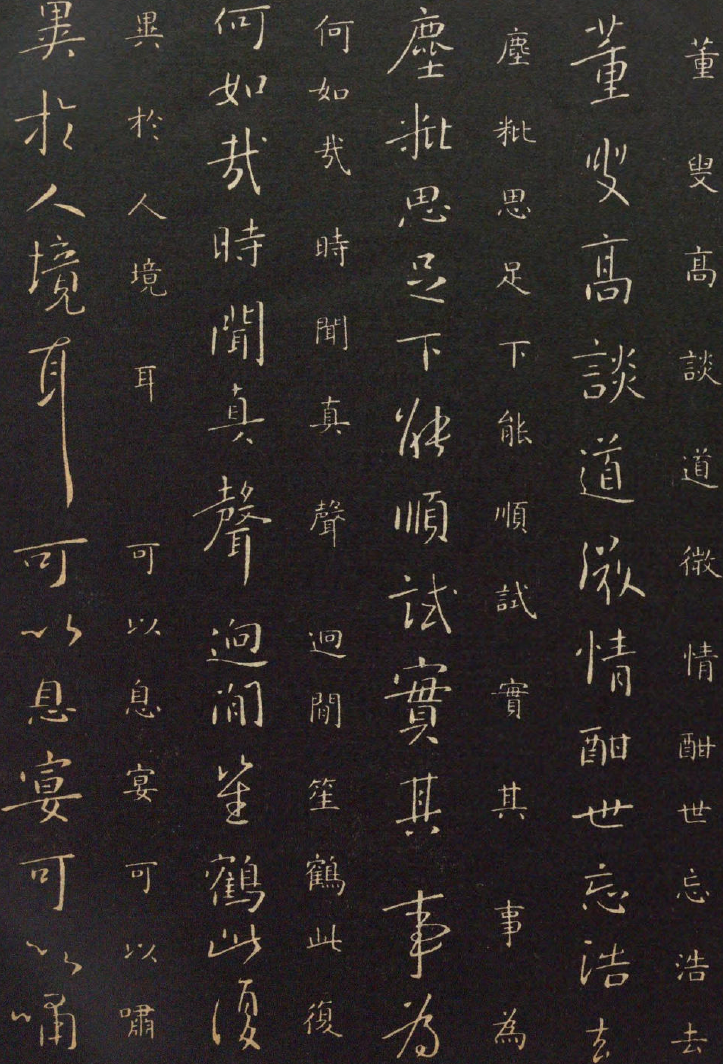 董叟高談道微情酣世忘浩去
董叟高談道微情酣世忘浩去
塵粃思足下能順試實其事為
塵粃思足下能順試實其事為
何如哉時聞真聲迥閒笙鶴此復
何如哉時聞真聲迥閒笙鶴此復
異於人境耳可以息宴可以嘯
異於人境耳可以息宴可以嘯